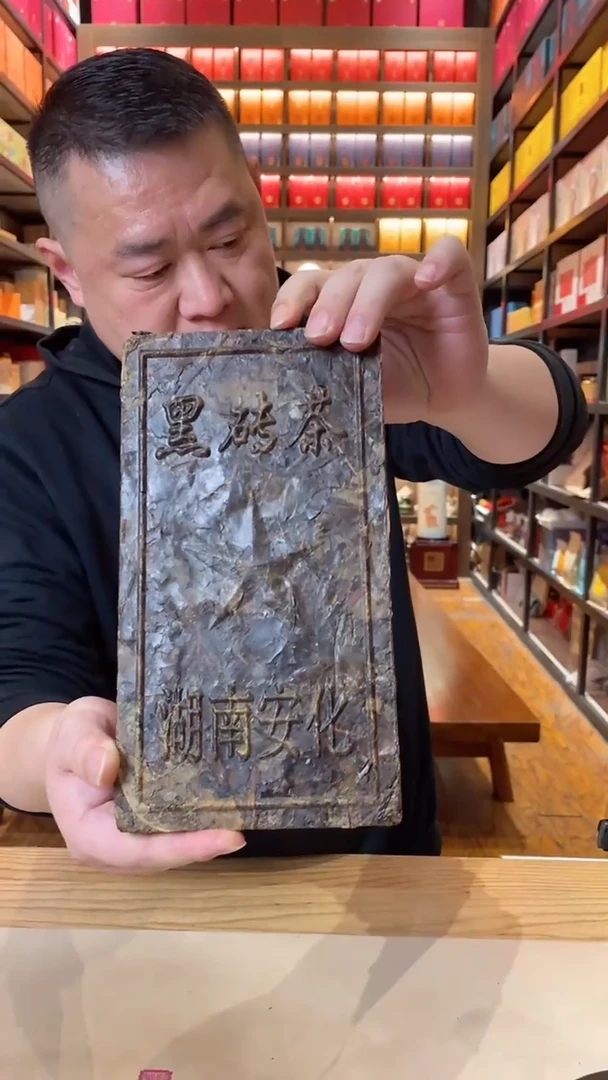 黑砖茶
湖南安化